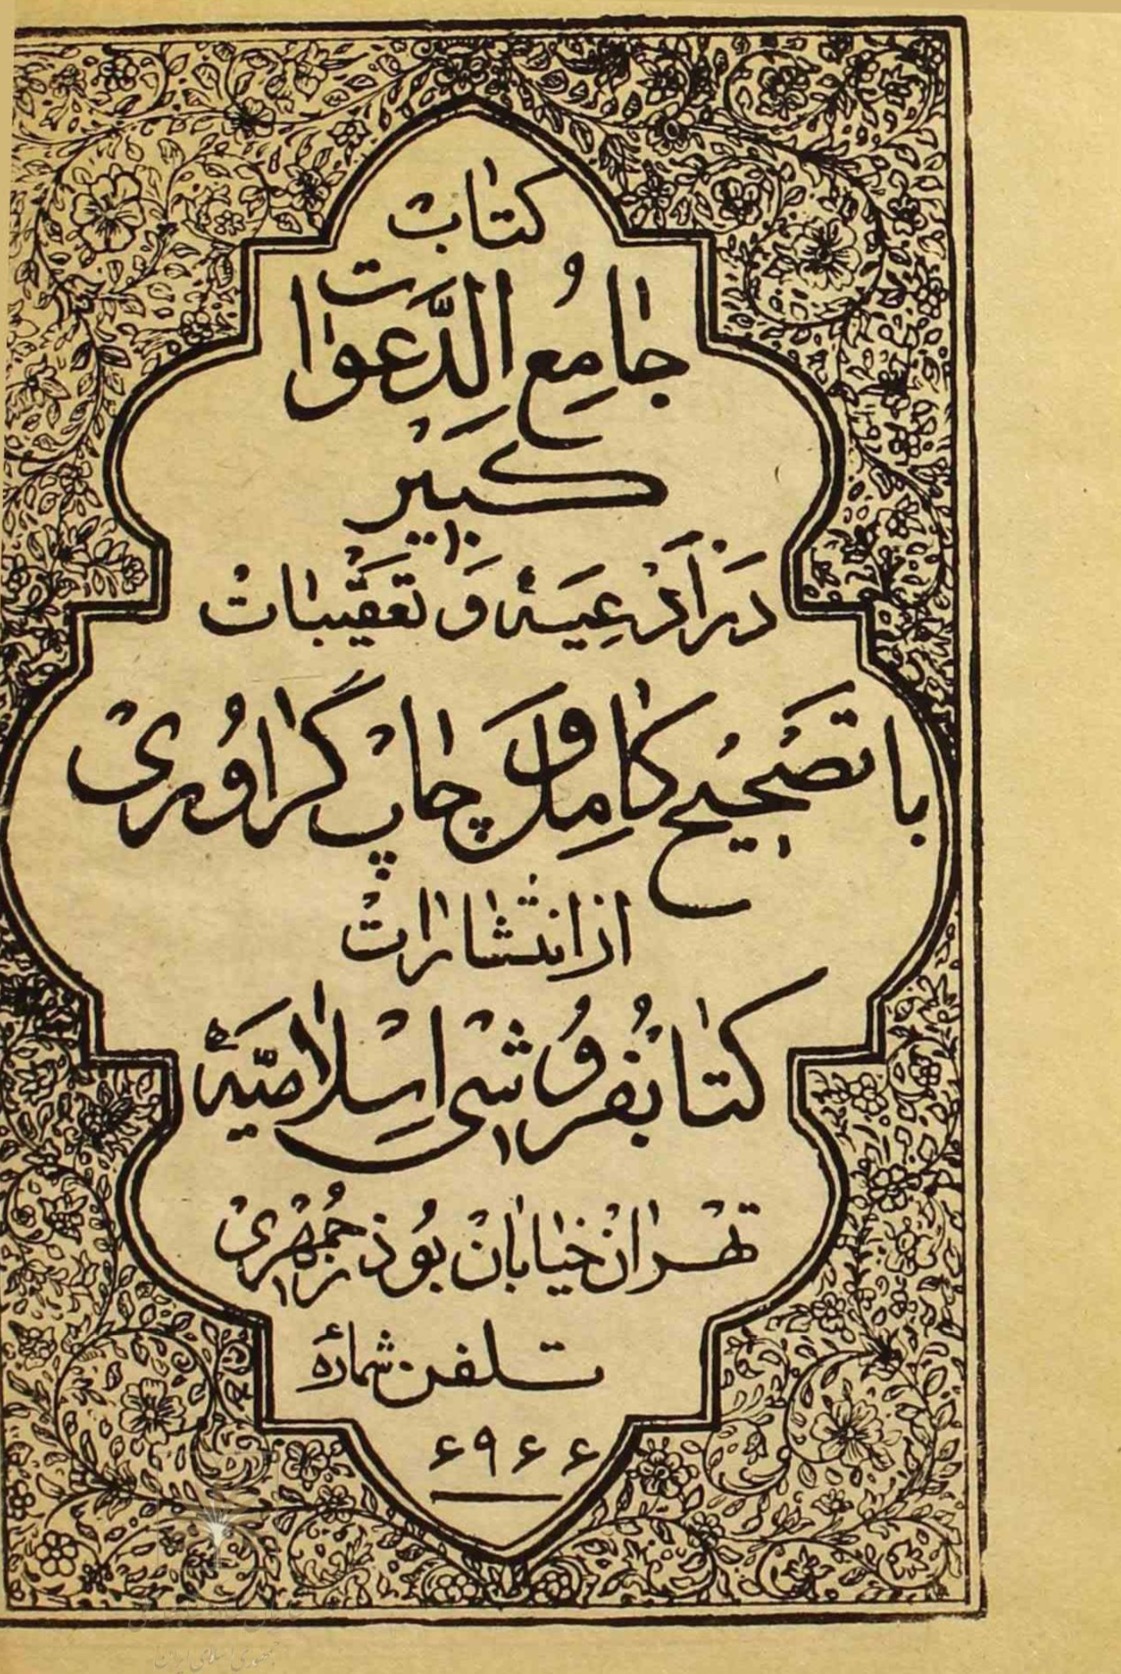 کتاب
جامع الدعوات
کبیر
در ادعیه و تعقیبات
با تصحیح کامل و چاپ گراوری
از انتشارات
کتابفروشی اسلامیه
تهران خیابان بوذرجمهری
تلفن شماره
۶۹۶۶
جمهوری اسلامی ایران